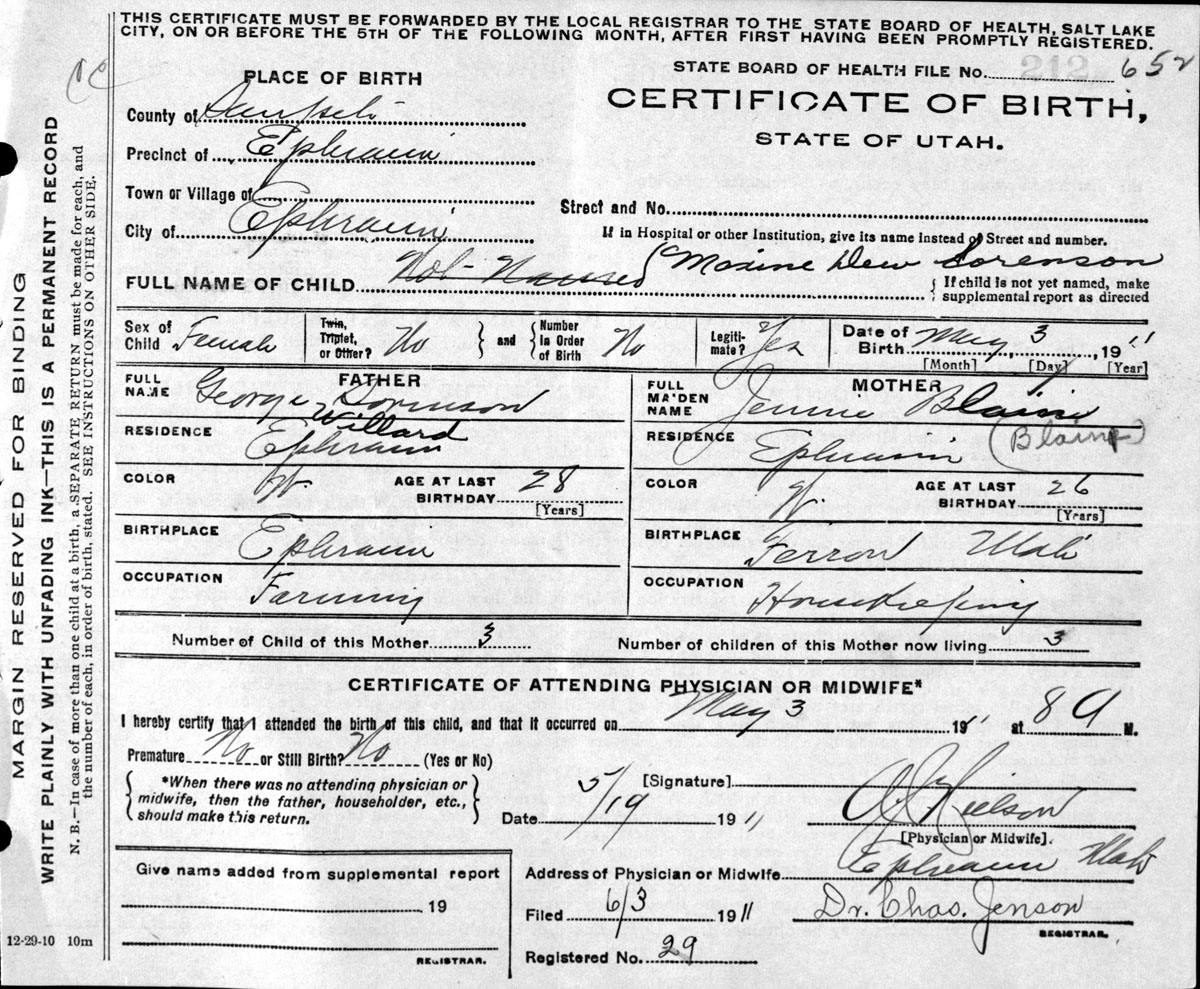 THIS CERTIFICATE MUST BE FORWARDED BY THE LOCAL REGISTRAR TO THE STATE BOARD OF HEALTH, SALT LAKE
CITY, ON OR BEFORE THE 5TH OF THE FOLLOWING MONTH, AFTER FIRST HAVING BEEN PROMPTLY REGISTERED.
MARGIN RESERVED FOR BINDING
WRITE PLAINLY WITH UNFADING INK—THIS IS A PERMANENT RECORD
N. B.—In case of more than one child at a birth, a SEPARATE RETURN must be made for each, and
the number of each, in order of birth, stated. SEE INSTRUCTIONS ON OTHER SIDE.
PLACE OF BIRTH
STATE BOARD OF HEALTH FILE No. 212 652
County of
CERTIFICATE OF BIRTH,
STATE OF UTAH.
Precinct of Ephraim
Town or Village of
City of Ephraim
Street and No.
If in Hospital or other Institution, give its name instead of Street and number.
FULL NAME OF CHILD Not Named (Maxine Dew Sorenson
If child is not yet named, make
supplemental report as directed
Sex of Child Female
Twin, Triplet, or Other? No
and
Number In Order of Birth No
Legitimate? Yes
Date of Birth May 3, 1911
[Month] [Day] [Year]
FATHER
FULL NAME George Sorenson
Willard
RESIDENCE Ephraim
COLOR W.
AGE AT LAST BIRTHDAY 28
[Years]
BIRTHPLACE Ephraim
OCCUPATION Farming
MOTHER
FULL MAIDEN NAME Jennie Blaine
(Blaine)
RESIDENCE Ephraim
COLOR W.
AGE AT LAST BIRTHDAY 26
[Years]
BIRTHPLACE Ferron Utah
OCCUPATION Housekeeping
Number of Child of this Mother 3
Number of children of this Mother now living 3
CERTIFICATE OF ATTENDING PHYSICIAN OR MIDWIFE*
I hereby certify that I attended the birth of this child, and that it occurred on May 3 1911 at 8 A M.
Premature No or Still Birth? No (Yes or No)
*When there was no attending physician or
midwife, then the father, householder, etc.,
should make this return.
[Signature] Nielson
[Physician or Midwife].
Date 5/19 1911
Address of Physician or Midwife Ephraim Utah
Filed 6/3 1911 Dr. Chas. Jenson
REGISTRAR.
Registered No. 29
Give name added from supplemental report
19
REGISTRAR.
12-29-10 10m